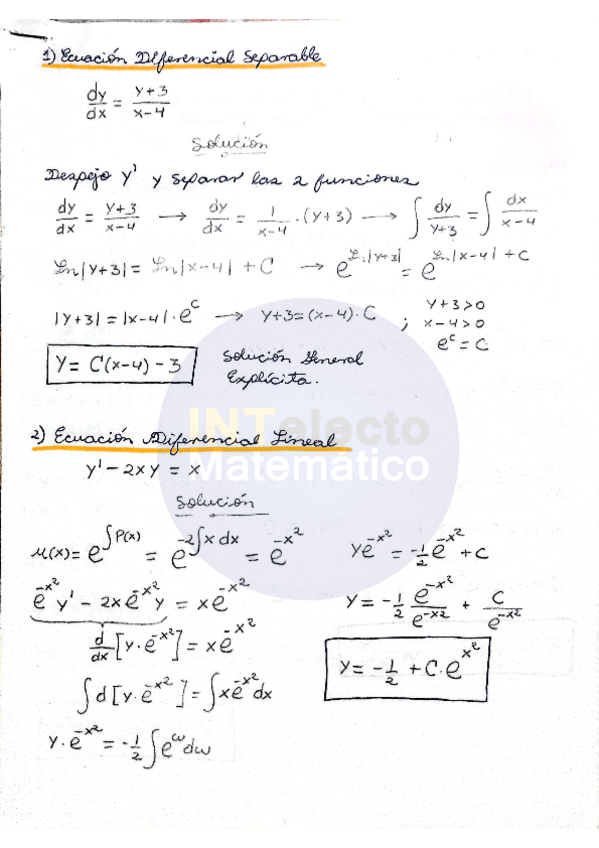 1) Ecuación Diferencial Separable
dy/dx = y+3/x-4
Solución
Despejo y' y separar las 2 funciones
dy/dx = y+3/x-4 → dy/dx = 1/x-4 · (y+3) → ∫ dy/y+3 = ∫ dx/x-4
Ln|y+3| = Ln|x-4| + C → e^Ln|y+3| = e^Ln|x-4| + C
|y+3| = |x-4| · e^C → y+3 = (x-4) · C ; y+3>0
x-4>0
e^C = C
y = C(x-4) - 3
Solución General
Explícita.
INTelecto
Matemático
2) Ecuación Diferencial Lineal
y' - 2xy = x
Solución
μ(x) = e^∫P(x) = e^-2∫x dx = e^-x²
e^-x² y' - 2x e^-x² y = x e^-x²
d/dx [y · e^-x²] = x e^-x²
∫ d [y · e^-x²] = ∫ x e^-x² dx
y · e^-x² = -1/2 ∫ e^w dw
y e^-x² = -1/2 e^-x² + C
y = -1/2 e^-x²/e^-x² + C/e^-x²
y = -1/2 + C · e^x²